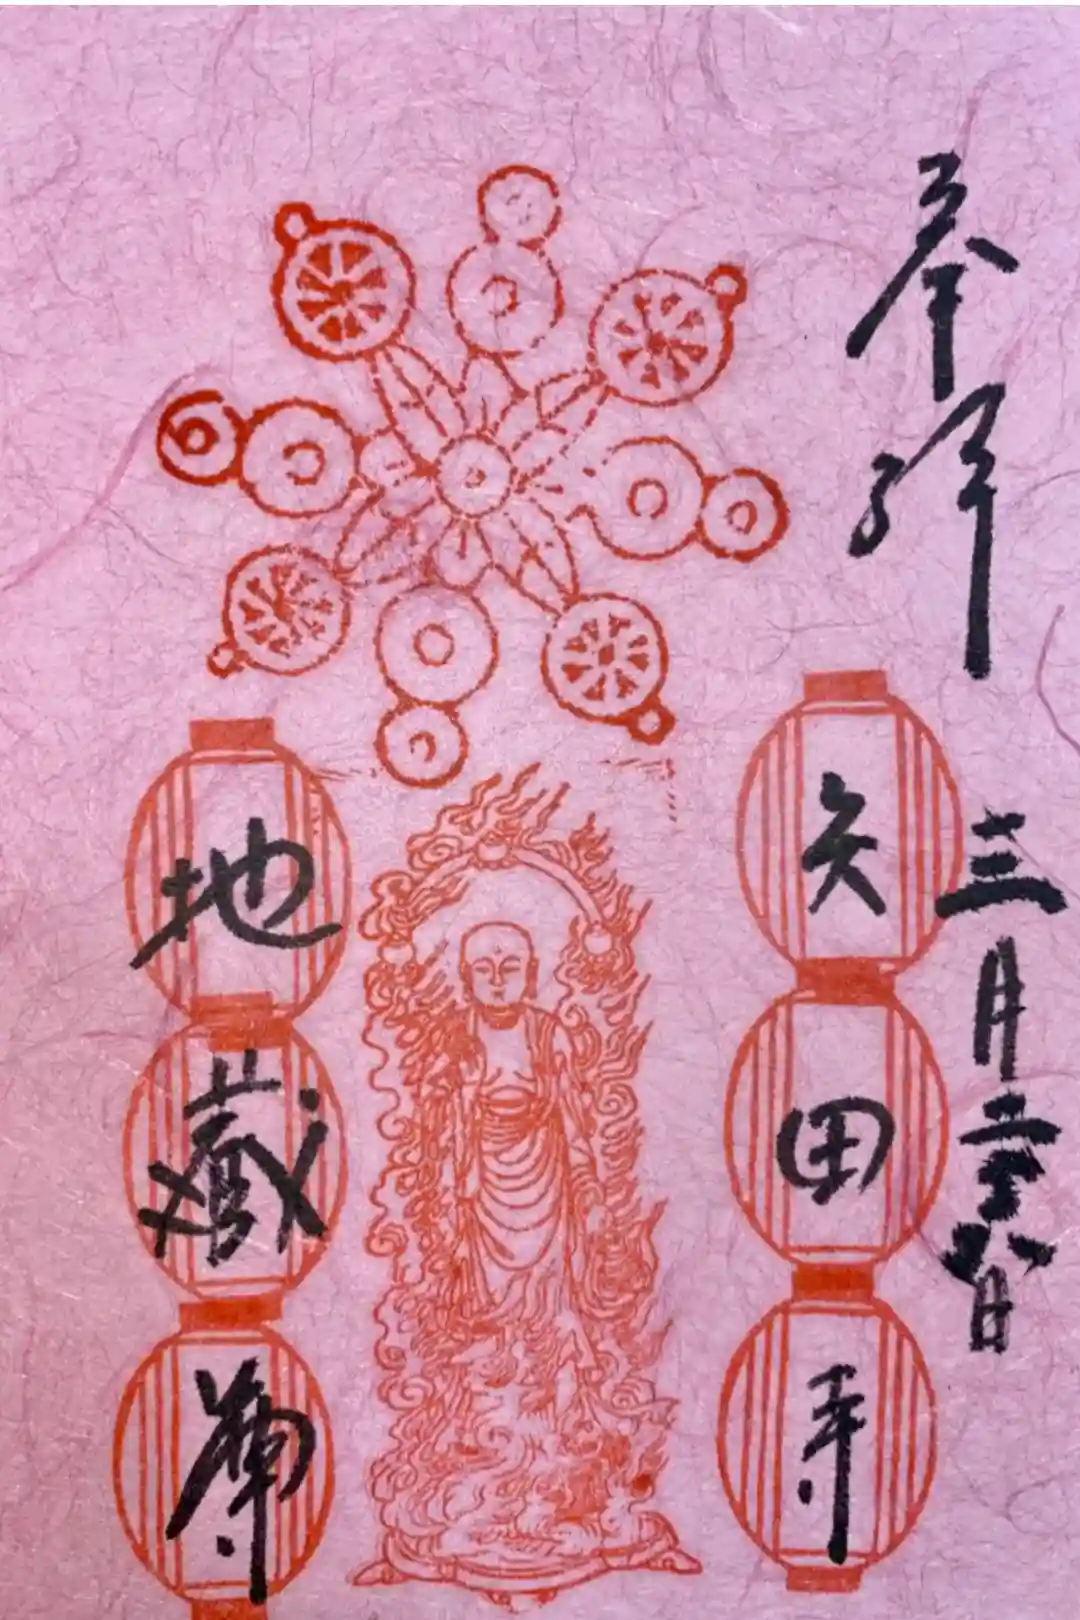 奉拝
三月二十八日
矢田寺
地蔵尊